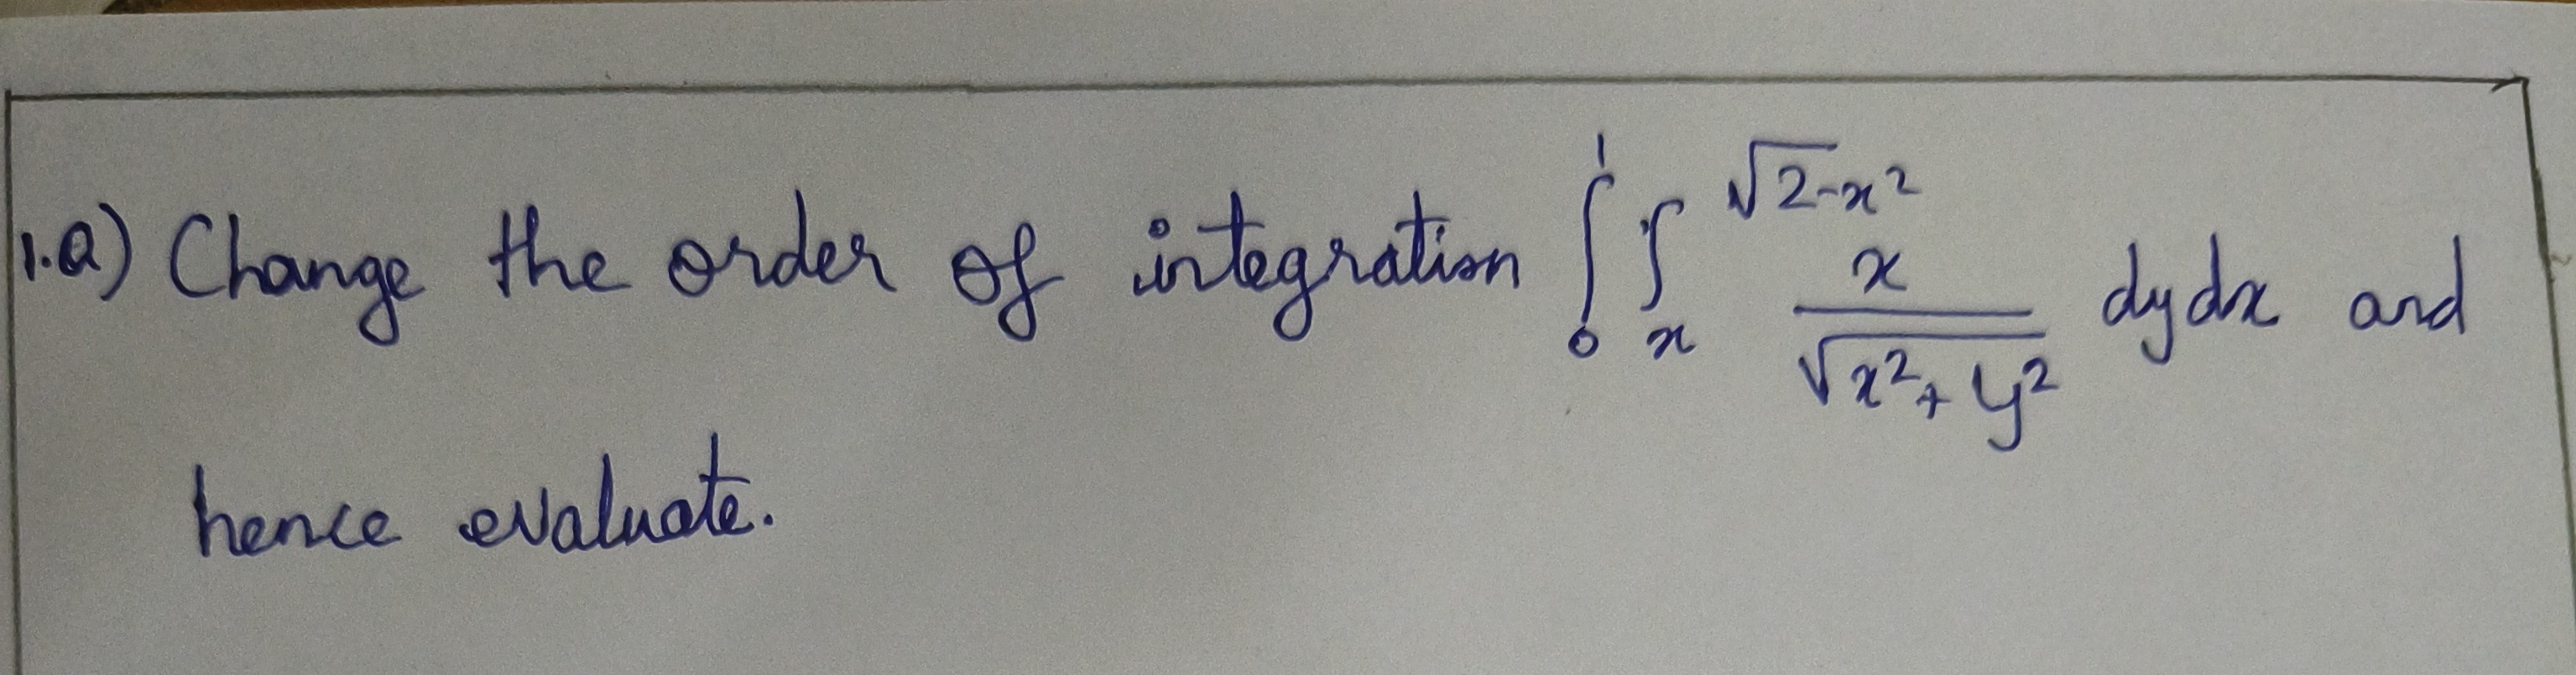 1.a) Change the order of integration ∫₀¹ ∫ₓ^(√2-x²) x/√(x²+y²) dy dx and
hence evaluate.